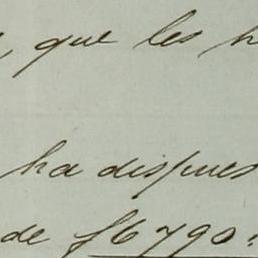 , que les h
ha dispues
de $6790.